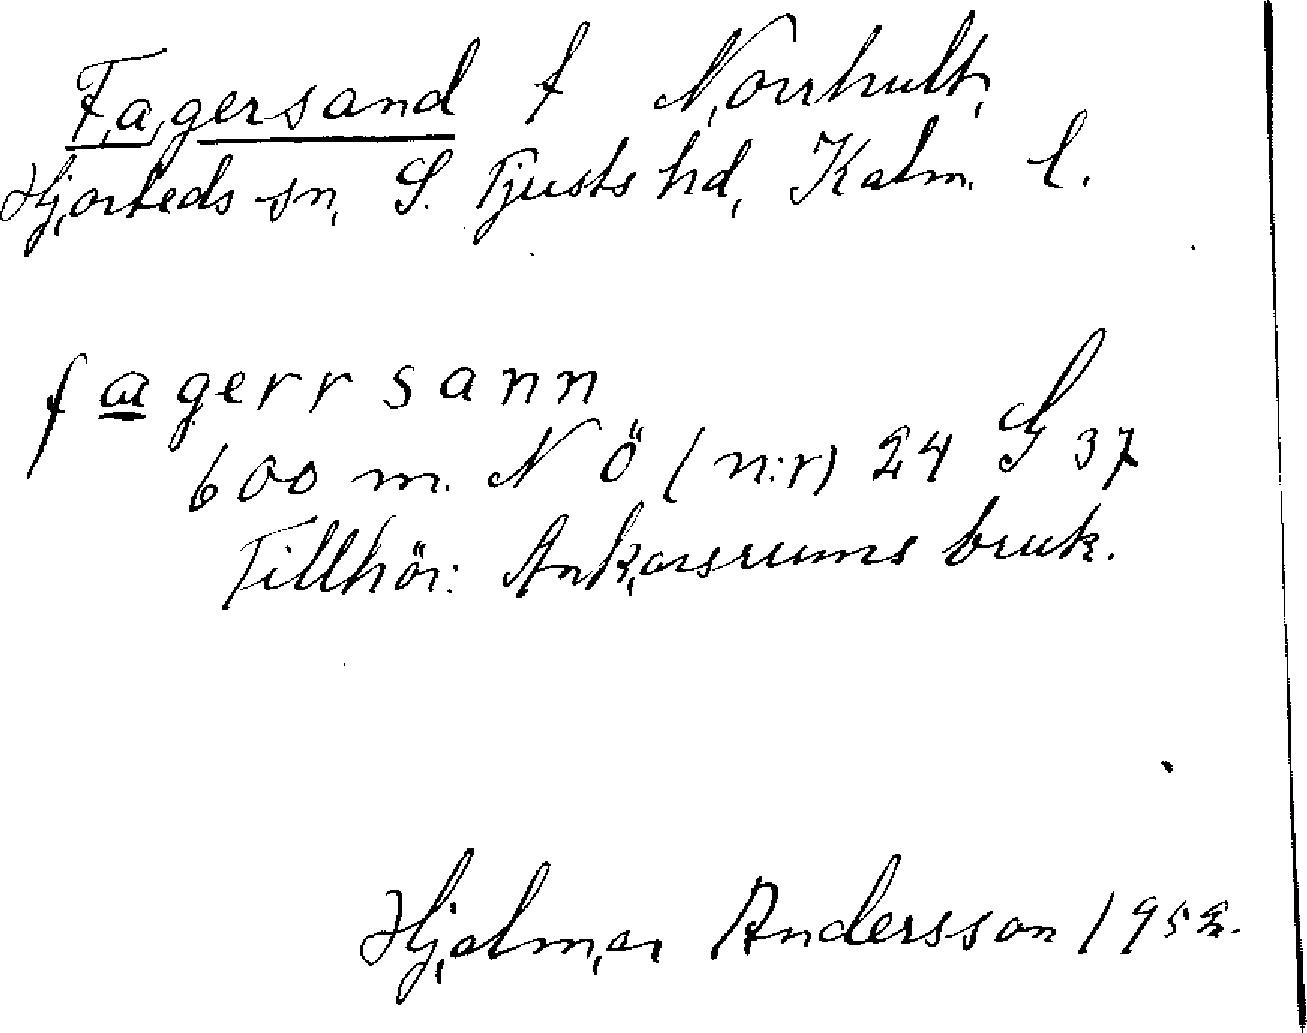 Fagersand f Norrhult,
Hjorteds sn, S. Tjusts hd, Kalm. l.
fagerrsann
600 m. N Ö (n:r) 24 G 37
Tillhör: Ankarsrums bruk.
Hjalmar Andersson 1952.